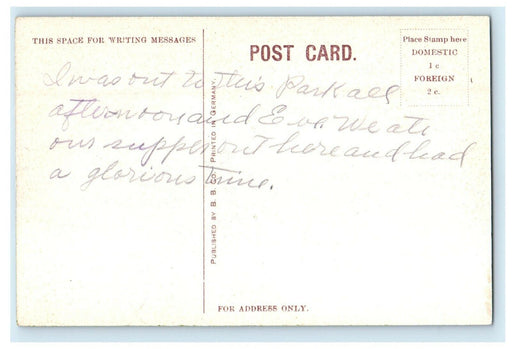 THIS SPACE FOR WRITING MESSAGES
POST CARD.
Place Stamp here
DOMESTIC
1 c
FOREIGN
2 c.
I was out to this Park all
afternoon and Eve. We ate
our supper out here and had
a glorious time.
PUBLISHED BY B. B. CO. PRINTED IN GERMANY.
FOR ADDRESS ONLY.